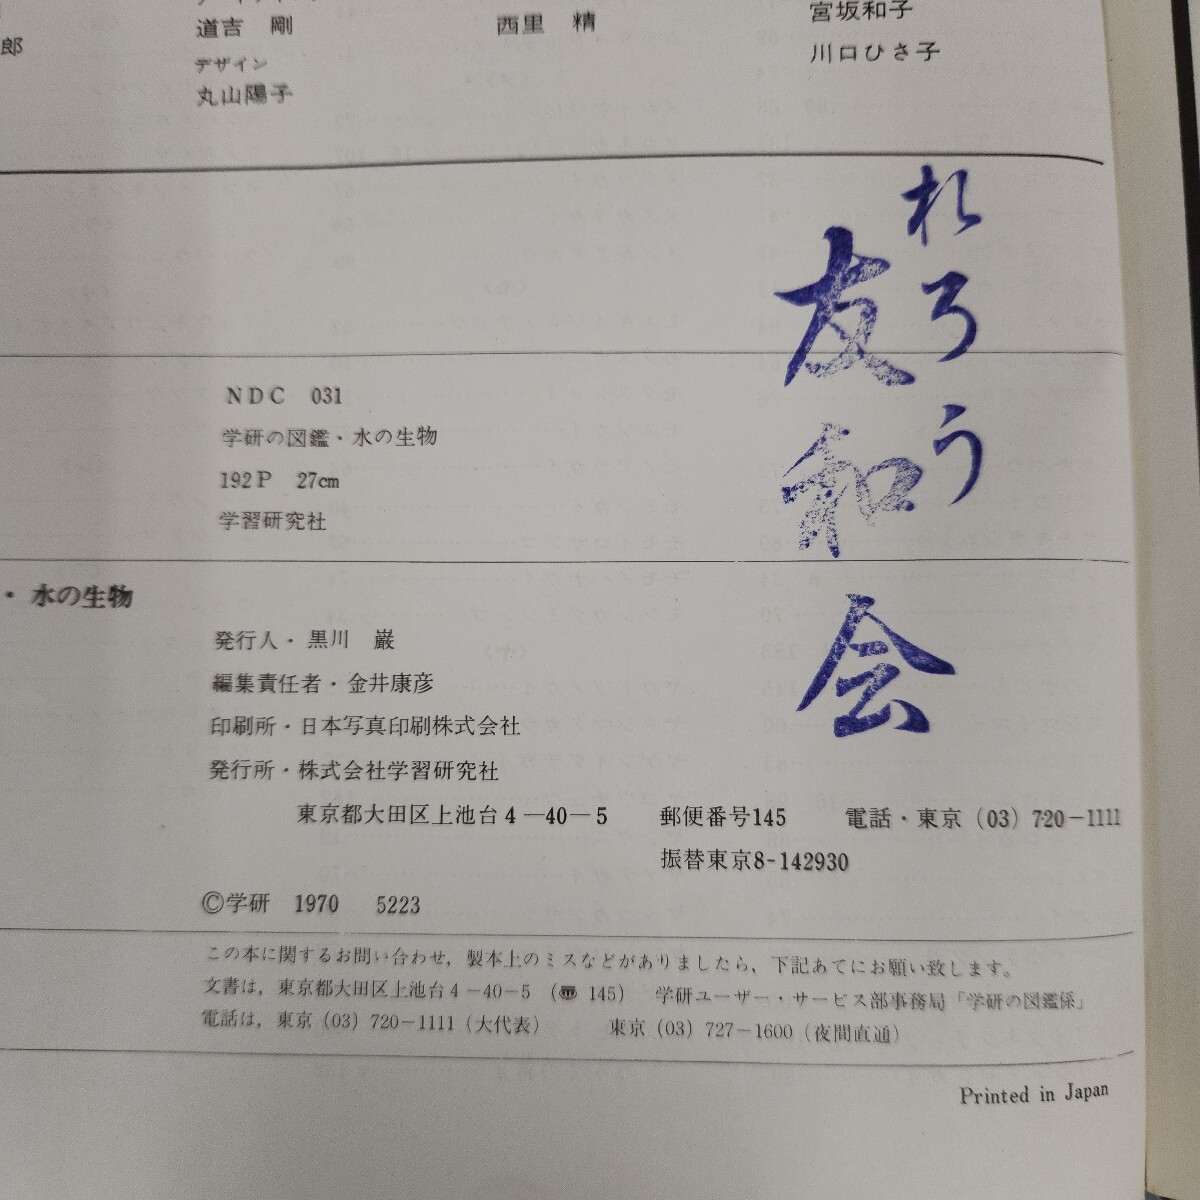 郎
道吉　剛
西里　精
宮坂和子
川口ひさ子
デザイン
丸山陽子
れろう
友和会
NDC　031
学研の図鑑・水の生物
192P　27cm
学習研究社
・水の生物
発行人・黒川　巌
編集責任者・金井康彦
印刷所・日本写真印刷株式会社
発行所・株式会社学習研究社
東京都大田区上池台4—40—5　郵便番号145　電話・東京（03）720−1111
振替東京8-142930
©学研　1970　5223
この本に関するお問い合わせ，製本上のミスなどがありましたら，下記あてにお願い致します。
文書は，東京都大田区上池台4−40−5（☎ 145）　学研ユーザー・サービス部事務局「学研の図鑑係」
電話は，東京（03）720−1111（大代表）　東京（03）727−1600（夜間直通）
Printed in Japan